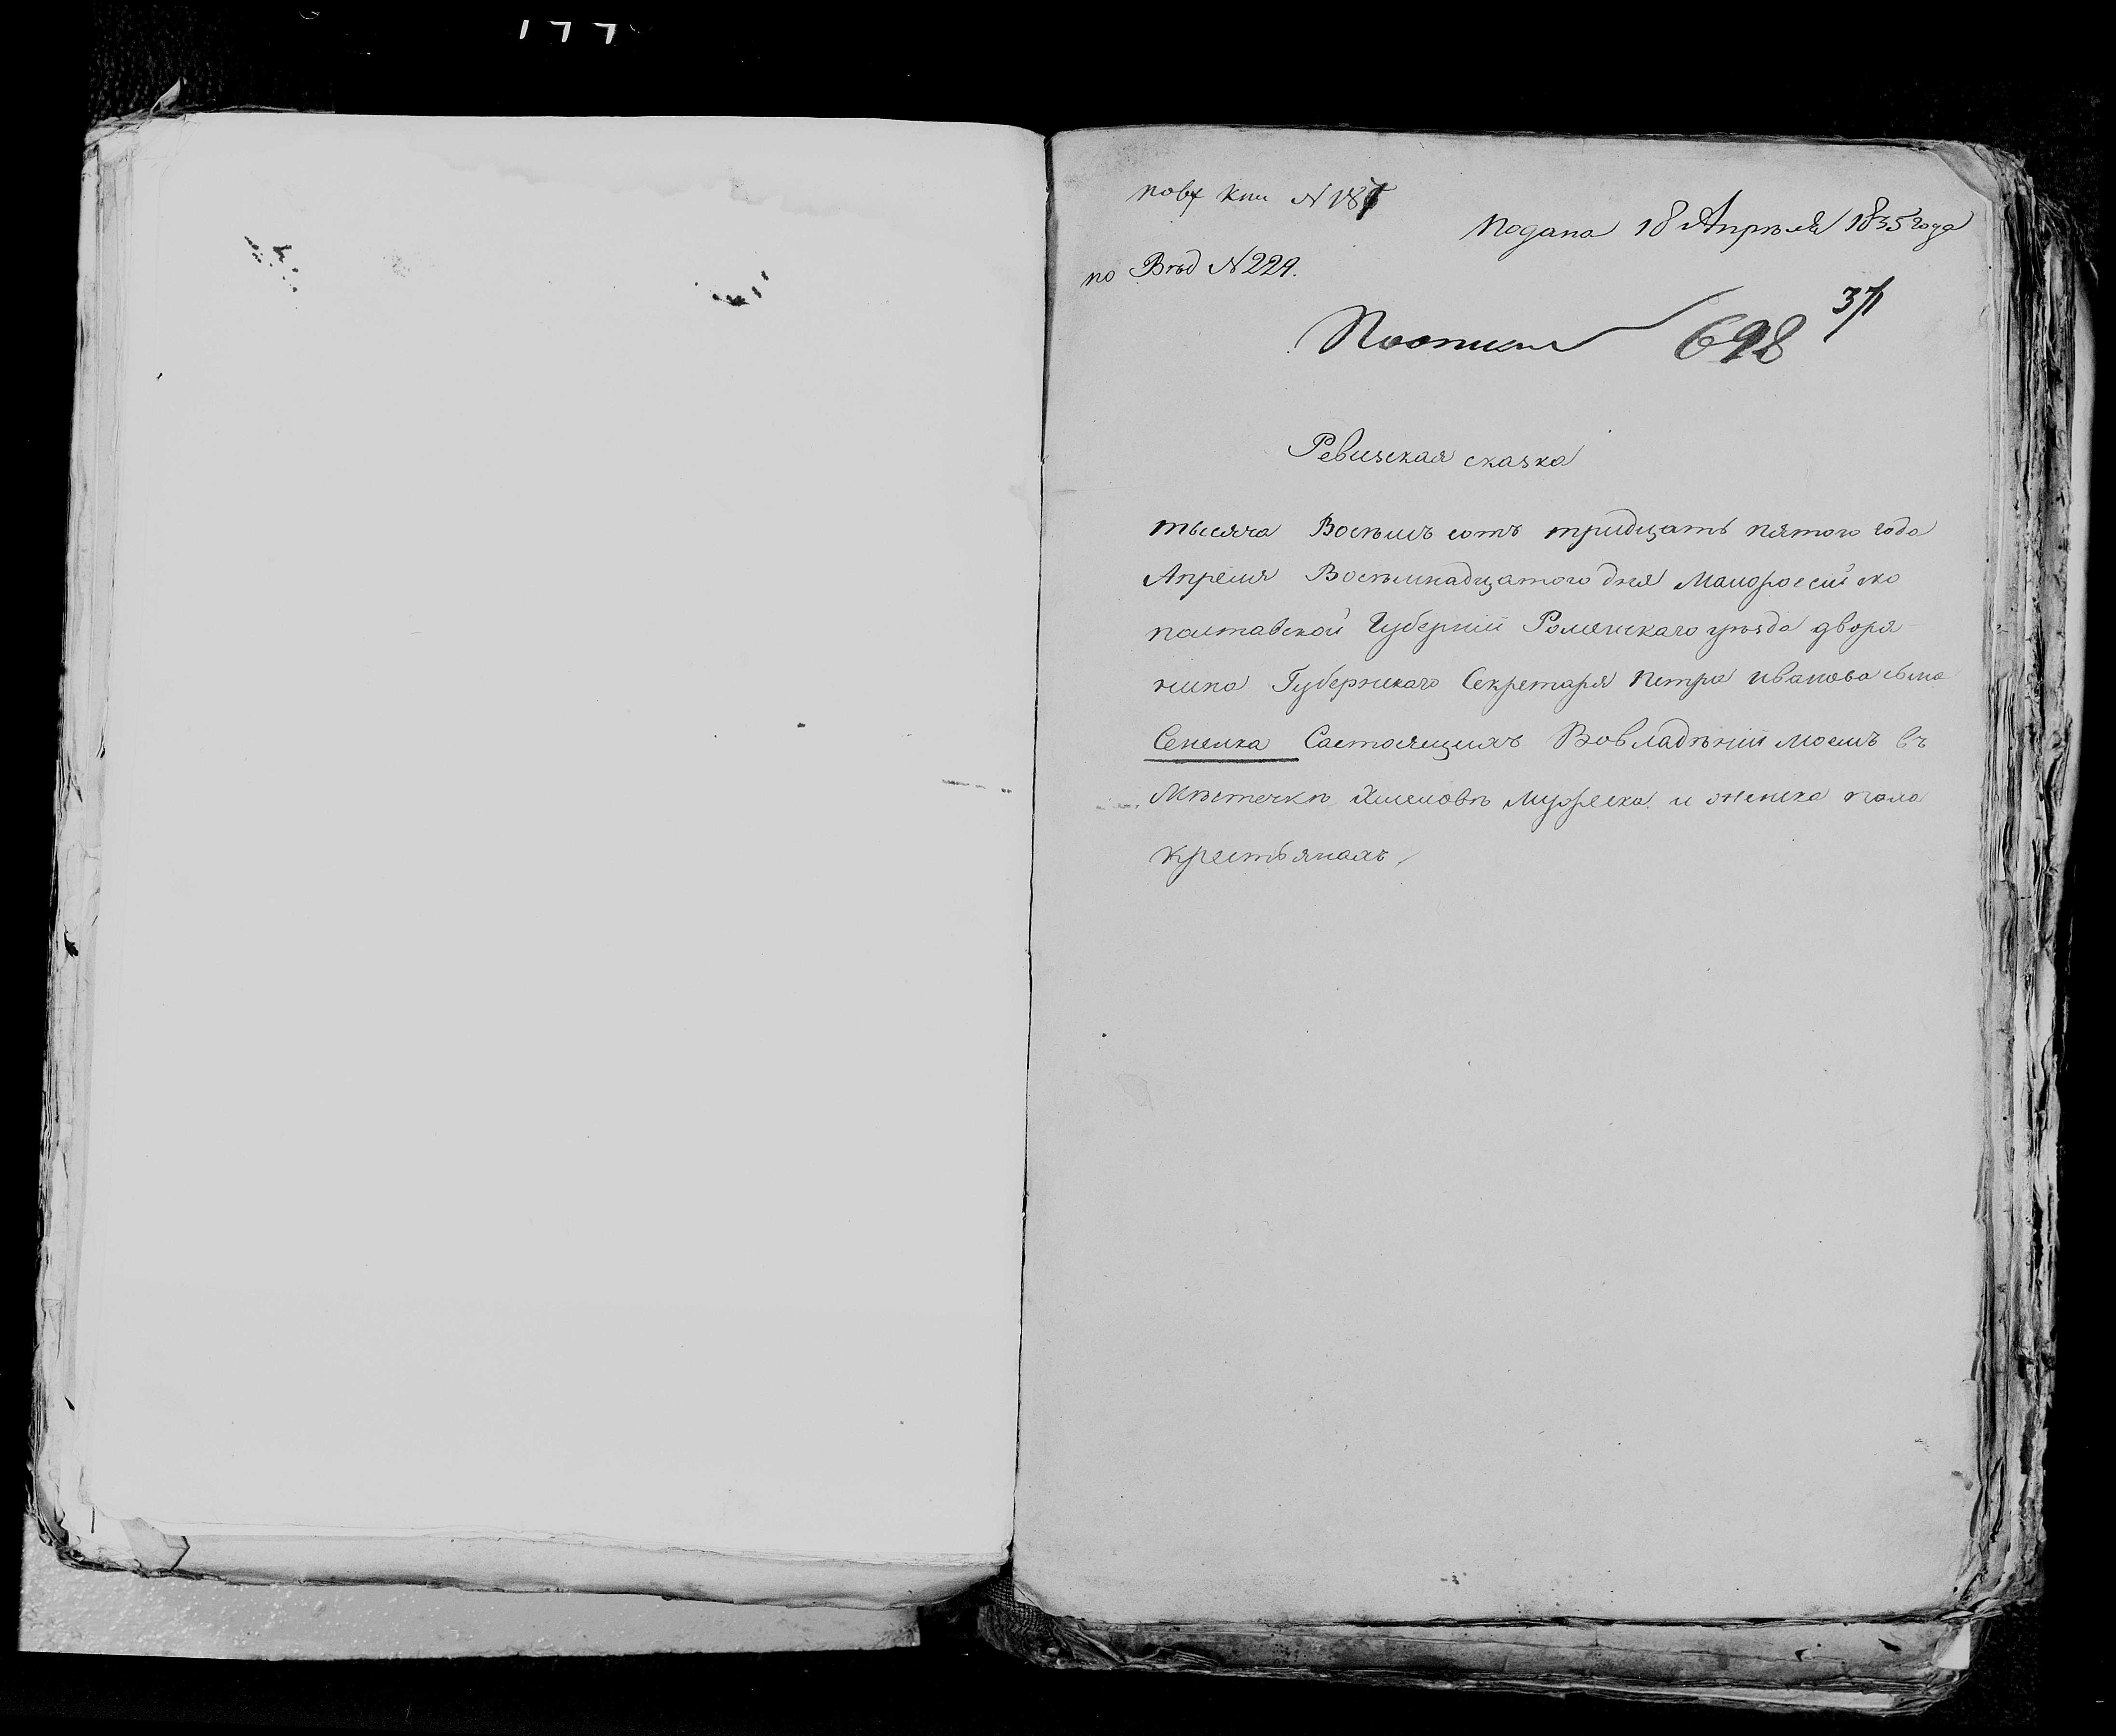 177
Подана 18 Апрѣля 1835 года
по Вѣд N 229.
698
371
Ревизская сказка
тысяча Восѣмъ сотъ тридцать пятого года
Апреля Восѣмнадцатого дня Малороссийско
полтавской Губерніи Роменскаго уѣзда дворя
нина Губернскаго Секретаря Петра Иванова сына
Сененка Састоящихъ Вовладѣніи моемъ въ
Мѣстечкѣ Хмеловѣ Мужеска и женска пола
крестьянахъ,